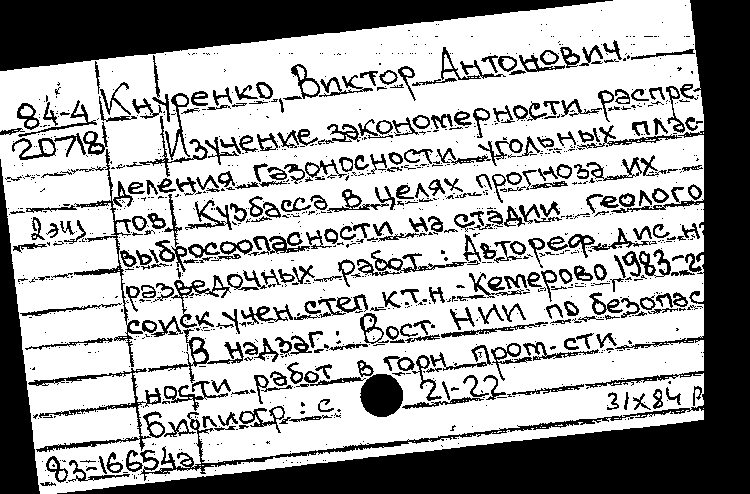 84-4 Кнуренко, Виктор Антонович.
20718 Изучение закономерности распре-
деления газоносности угольных плас-
2 экз тов Кузбасса в целях прогноза их
выбросоопасности на стадии геолого
разведочных работ : Автореф. дис. на
соиск учен. степ к.т.н - Кемерово, 1983-22
В надзаг.: Вост. НИИ по безопас
ности работ в горн. пром-сти.
Библиогр : с. 21-22
31X84
83-16654а